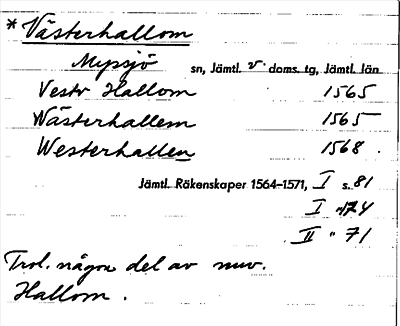 * Västerhallom
Myssjö sn, Jämtl. v. doms. tg, Jämtl. län
Vestr Hallom 1565
Wästerhallem 1565
Westerhallen 1568.
Jämtl. Räkenskaper 1564–1571, I s. 81
I " 174
II " 71
Trol. någon del av nuv.
Hallom.